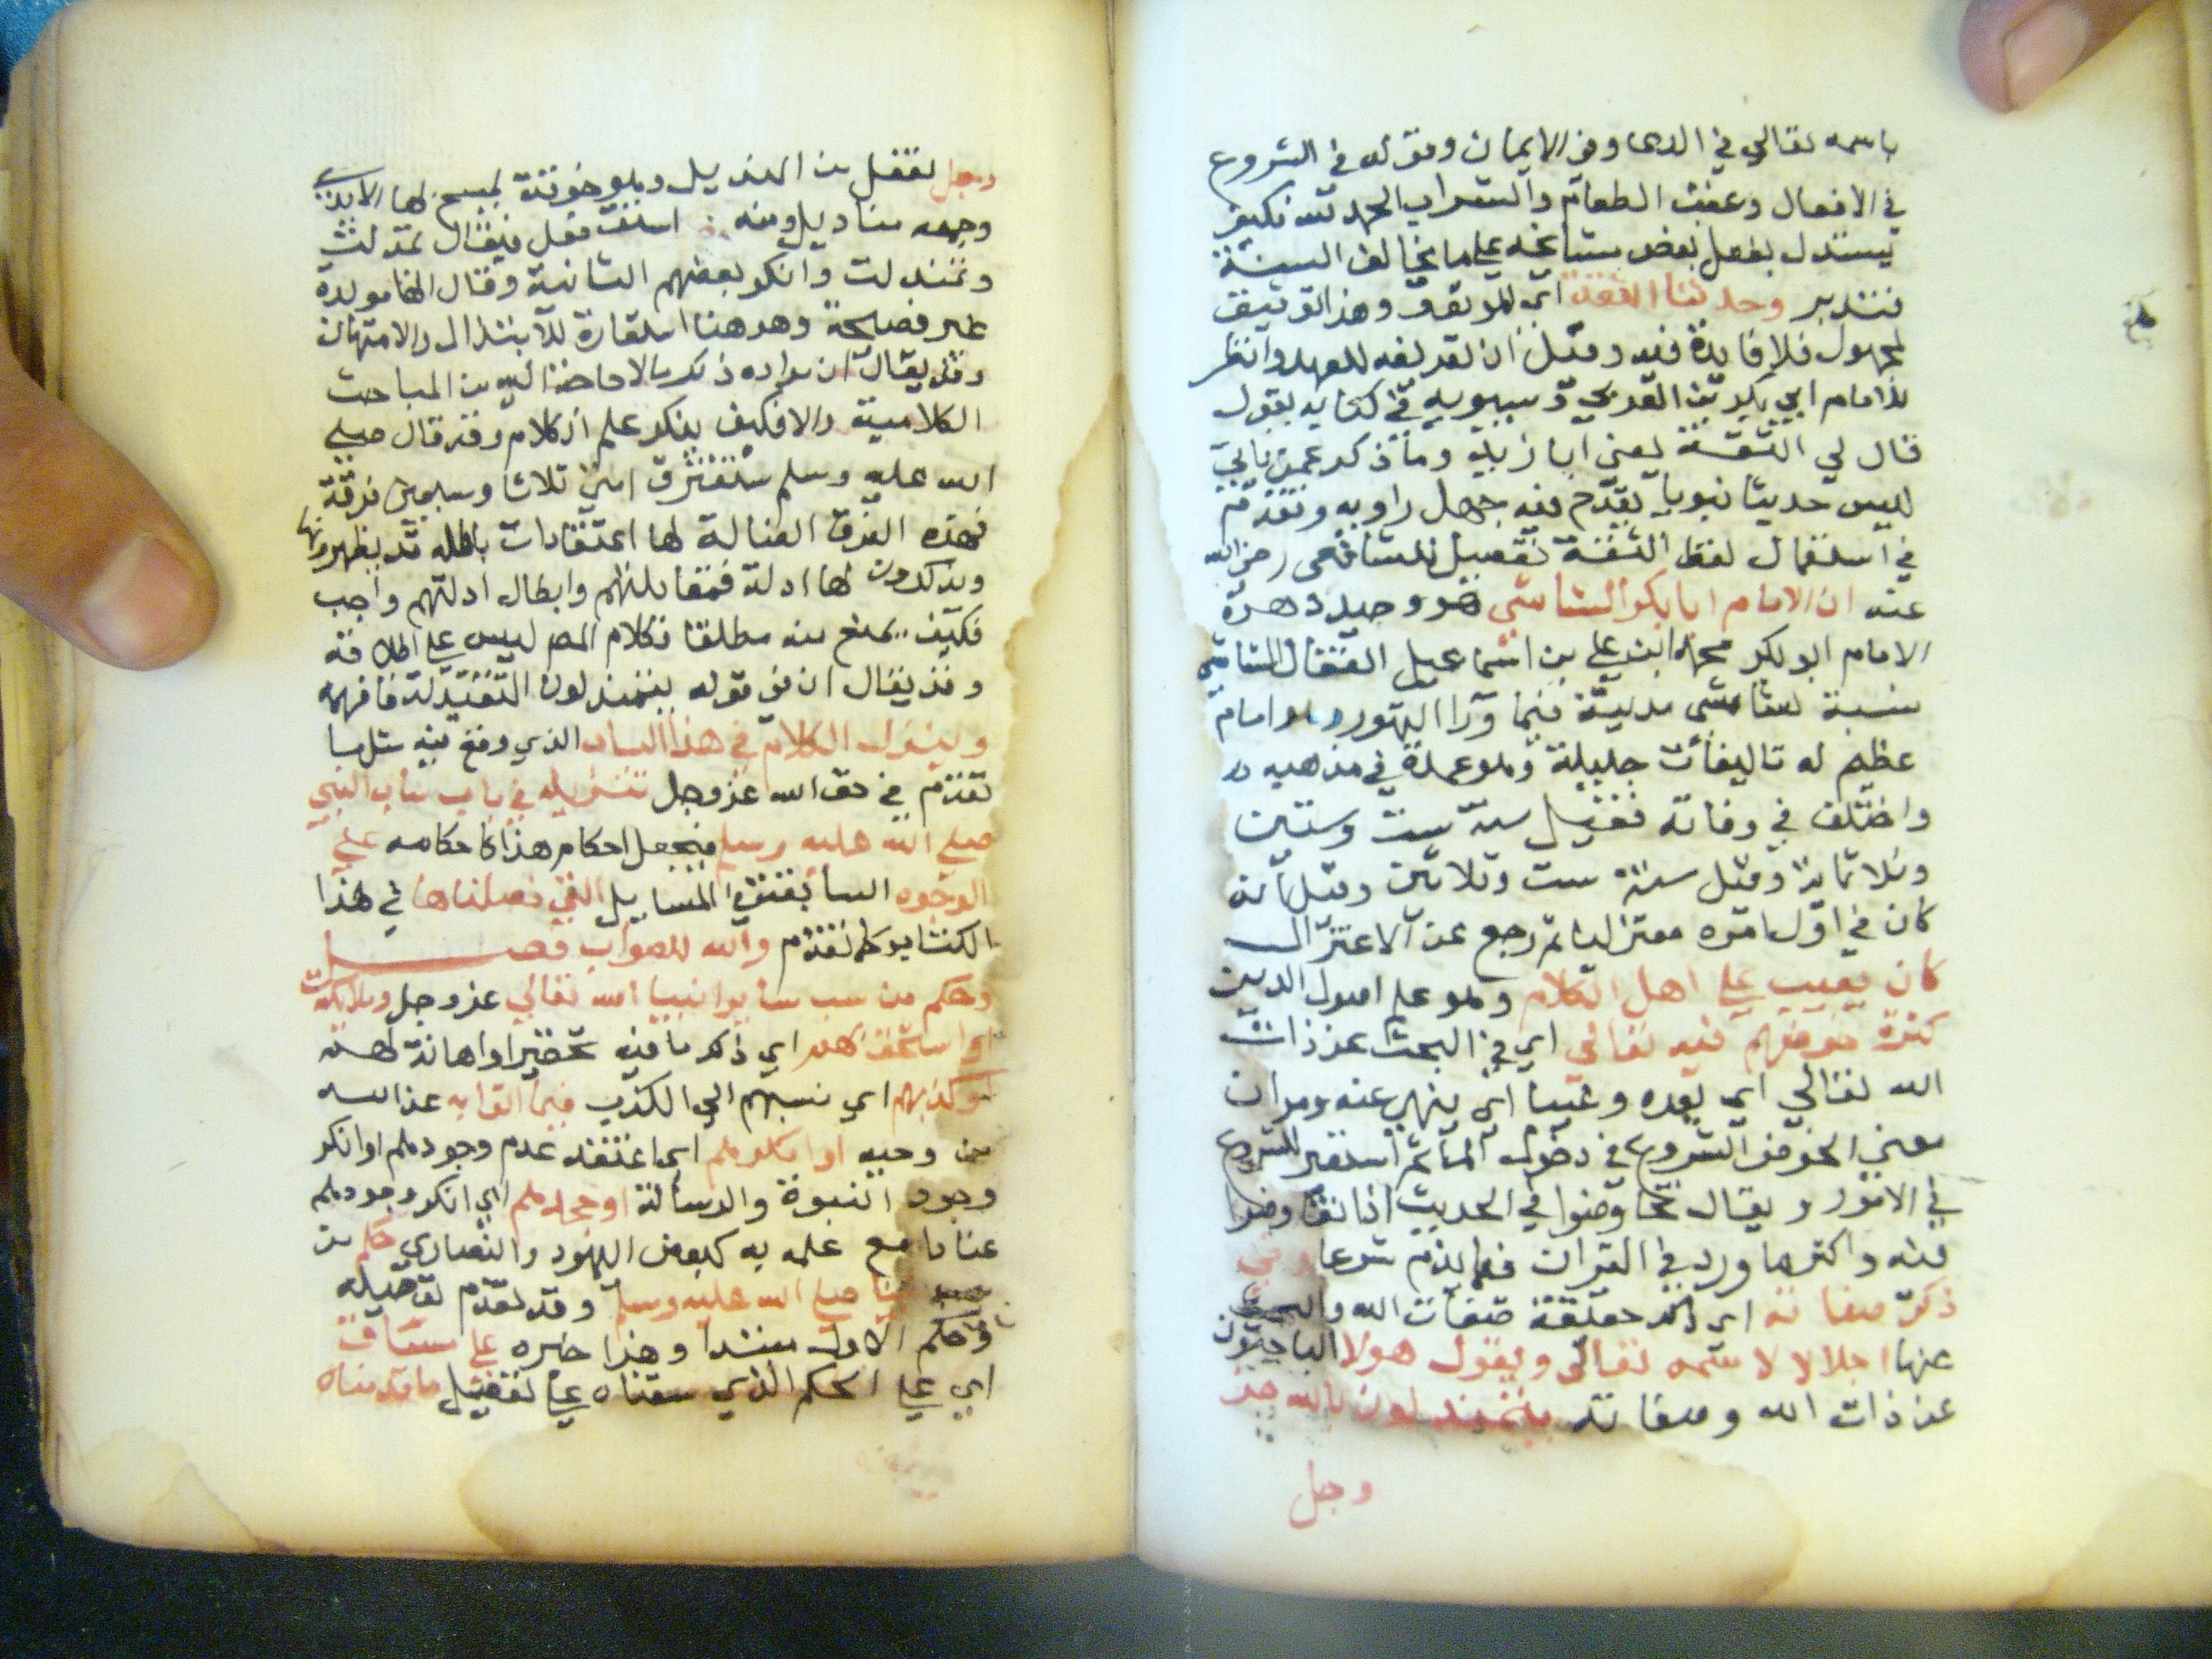 باسمه تعالي في الدعا وفي الايمان وقوله في الشروع
في الافعال وعقب الطعام والشراب الحمد لله فكيف
يستدل بفعل بعض مشايخه علي ما يخالف السنة
فتدبر وحدثنا الثقة اي الموثوق وهذا توثيق
لمجهول فلا فايدة فيه وقيل ان تعريفه للعهد وانظر
للامام ابي بكر بن العربي وسيبويه في كتابه يقول
قال لي الثقة يعني ابا زيد وما ذكر عمن
ليس حديثا نبويا يقدح فيه جهل راويه وتقدم
في استعمال لفظ الثقة تفصيل للشافعي رضي الله
عنه ان الامام ابا بكر الشاشي هو وحيد دهره
الامام ابو بكر محمد ابن علي بن اسماعيل القفال الشاشي
نسبة لشاش مدينة فيما ورا النهر وهو امام
عظيم له تاليفات جليلة وهو عمدة في مذهبه
واختلف في وفاته فقيل سنة ست وستين
وثلاثماية وقيل سنة ست وثلاثين وقيل انه
كان في اول امره معتزليا ثم رجع عن الاعتزال
كان يعيب علي اهل الكلام وهو علم اصول الدين
كثرة خوضهم فيه تعالي اي في البحث عن ذات
الله تعالي اي يعده وعيبا اي ينهي عنه ومر ان
معني الخوض الشروع في دخول الماء ثم استعير للشروع
في الامور ويقال تخاوضوا في الحديث اذا تفاوضوا
فيه واكثر ما ورد في القران فيما يذم شرعا وفي
ذكر صفاته اي ذكر حقيقة صفات الله والبحث
عنها اجلالا لاسمه تعالي ويقول هولا الباحثون
عن ذات الله وصفاته يتمندلون بالله عز
وجل
وجل تفعل من المنديل وهو خرقة يمسح بها الايدي
وجمعه مناديل ومنه اشتق فعل فيقال تمندلت
وتندلت وانكر بعضهم الثانية وقال انها مولدة
غير فصيحة وهو هنا استعارة للابتذال والامتهان
وقد يقال ان مراده ذكر ما لا حاجة اليه من المباحث
الكلامية والا فكيف ينكر علم الكلام وقد قال صلي
الله عليه وسلم ستفترق امتي ثلاثا وسبعين فرقة
فهذه الفرق الضالة لها اعتقادات باطلة قد يظهرونها
ويذكرون لها ادلة فمقابلتهم وابطال ادلتهم واجب
فكيف يمنع منه مطلقا فكلام المص ليس علي اطلاقه
وقد يقال ان في قوله يتمندلون التقييد له فافهمه
وينزل الكلام في هذا الباب الذي وقع فيه مثل ما
تقدم في حق الله عز وجل تنزيله في باب ساب النبي
صلي الله عليه وسلم فيجعل احكام هذا كاحكامه علي
الوجوه السابقة في المسايل التي فصلناها في هذا
الكتاب كما تقدم والله للصواب فصل
وحكم من سب ساير انبيا الله تعالي عز وجل وملائكته
او استخف بهم اي ذكر ما فيه تحقيرا واهانة لهم
او كذبهم اي نسبهم الي الكذب فيما اتوا به عن الله
من وحيه او انكرهم اي اعتقد عدم وجودهم او انكر
وجود النبوة والرسالة او جحدهم اي انكر وجودهم
عنادا مع علمه به كبعض اليهود والنصاري حكم من
سب نبينا صلي الله عليه وسلم وقد تقدم تفصيله
وحكم الاول مبتدا وهذا خبره علي مساق
اي علي الحكم الذي سقناه علي تفصيل ما قدمناه